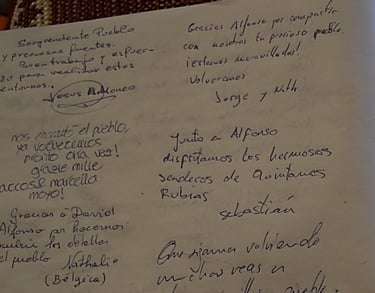 Sorprendente Pueblo
y preciosas fuentes.
Buen trabajo y esfuer-
zo para realizar estos
entornos.
Jesus
nos encantó el pueblo,
ya volveremos
pronto otra vez!
grazie mille
marcello
moyo!
Gracias a David
Alfonso por hacernos
los detalles
el pueblo Nathalie
(Bélgica)
Gracias Alfonso por compartir
con nosotros tu precioso pueblo
¡estamos maravillados!
Volveremos
Jorge y
Junto a Alfonso
disfrutamos los hermosos
senderos de Quintanas
Rubias
sebastián
Que sigamos volviendo
muchas veces a
pueblo.